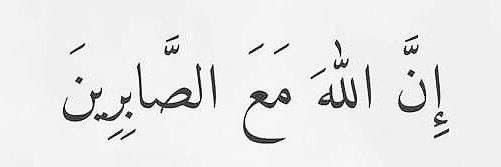 إِنَّ اللهَ مَعَ الصَّابِرِينَ